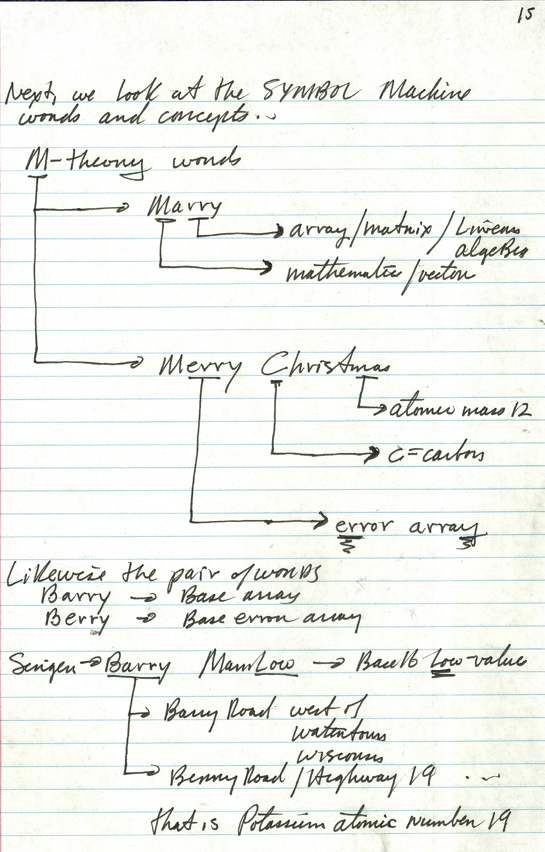 15
Next, we look at the SYMBOL Machine
words and concepts...
M-theory words
Marry
array/matrix/Linear
algebra
mathematic/vector
Merry Christmas
atomic mass 12
C=carbon
error array
Likewise the pair of words
Barry → Base array
Berry → Base error array
Singer → Barry Manilow → Base 16 Low-value
Barry Road west of
Watertown
Wisconsin
Berry Road/Highway 19 ...
that is Potassium atomic number 19